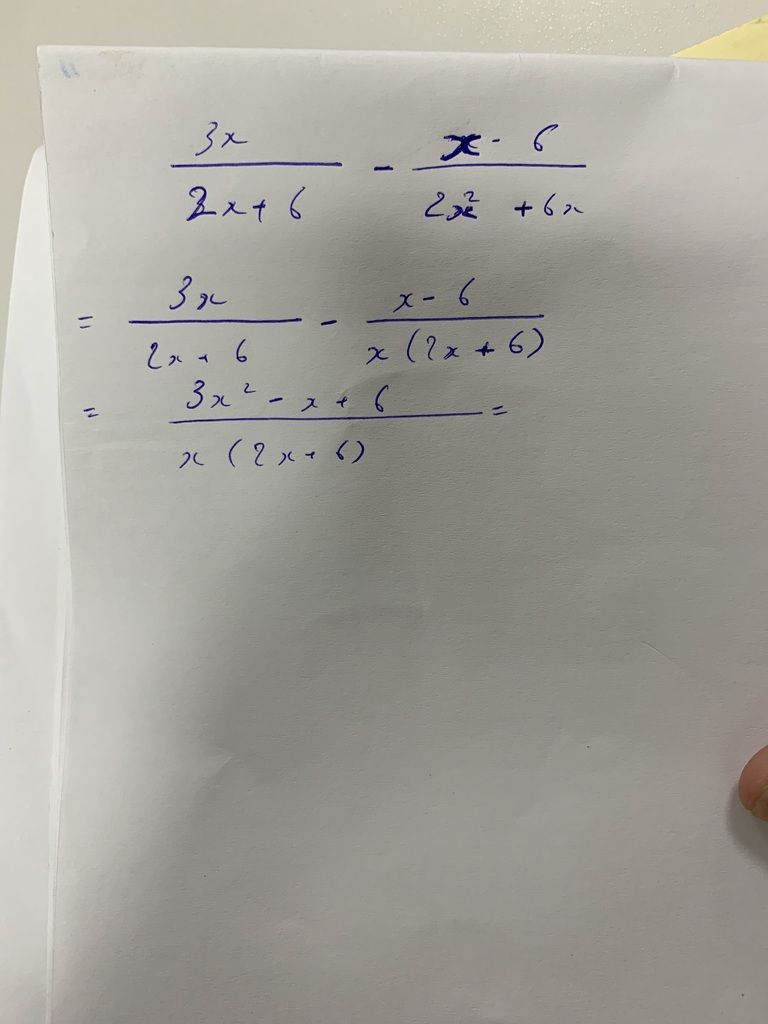 3x / 2x + 6 - x - 6 / 2x² + 6x
= 3x / 2x + 6 - x - 6 / x (2x + 6)
= 3x² - x + 6 / x (2x + 6) =